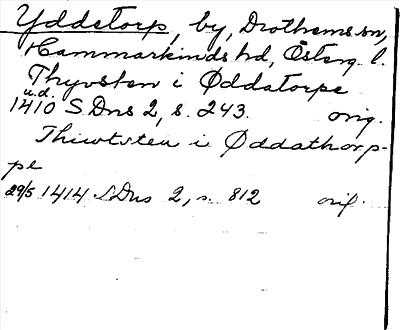 Yddetorp, by, Drothems sn,
Hammarkinds hd, Österg. l.
Thyvsten i Øddatorpe
u.d.
1410 S Dns 2, s. 243. orig.
Thiwtsten i Øddathorp-
pe
29/5 1414 S Dns 2, s. 812 orig.